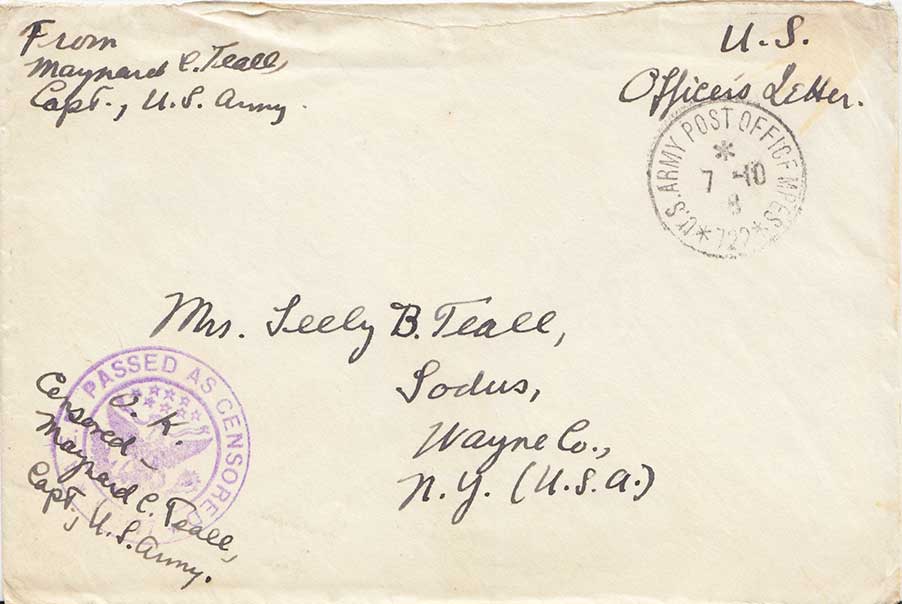 From
Maynard C. Teall,
Capt., U.S. Army.
U.S.
Officer's Letter.
U.S. ARMY POST OFFICE MPES
*
7 -10
8
*722*
Mrs. Seely B. Teall,
Sodus,
Wayne Co.,
N.Y. (U.S.A.)
PASSED AS CENSORED
O.K.
Censored -
Maynard C. Teall,
Capt., U.S. Army.